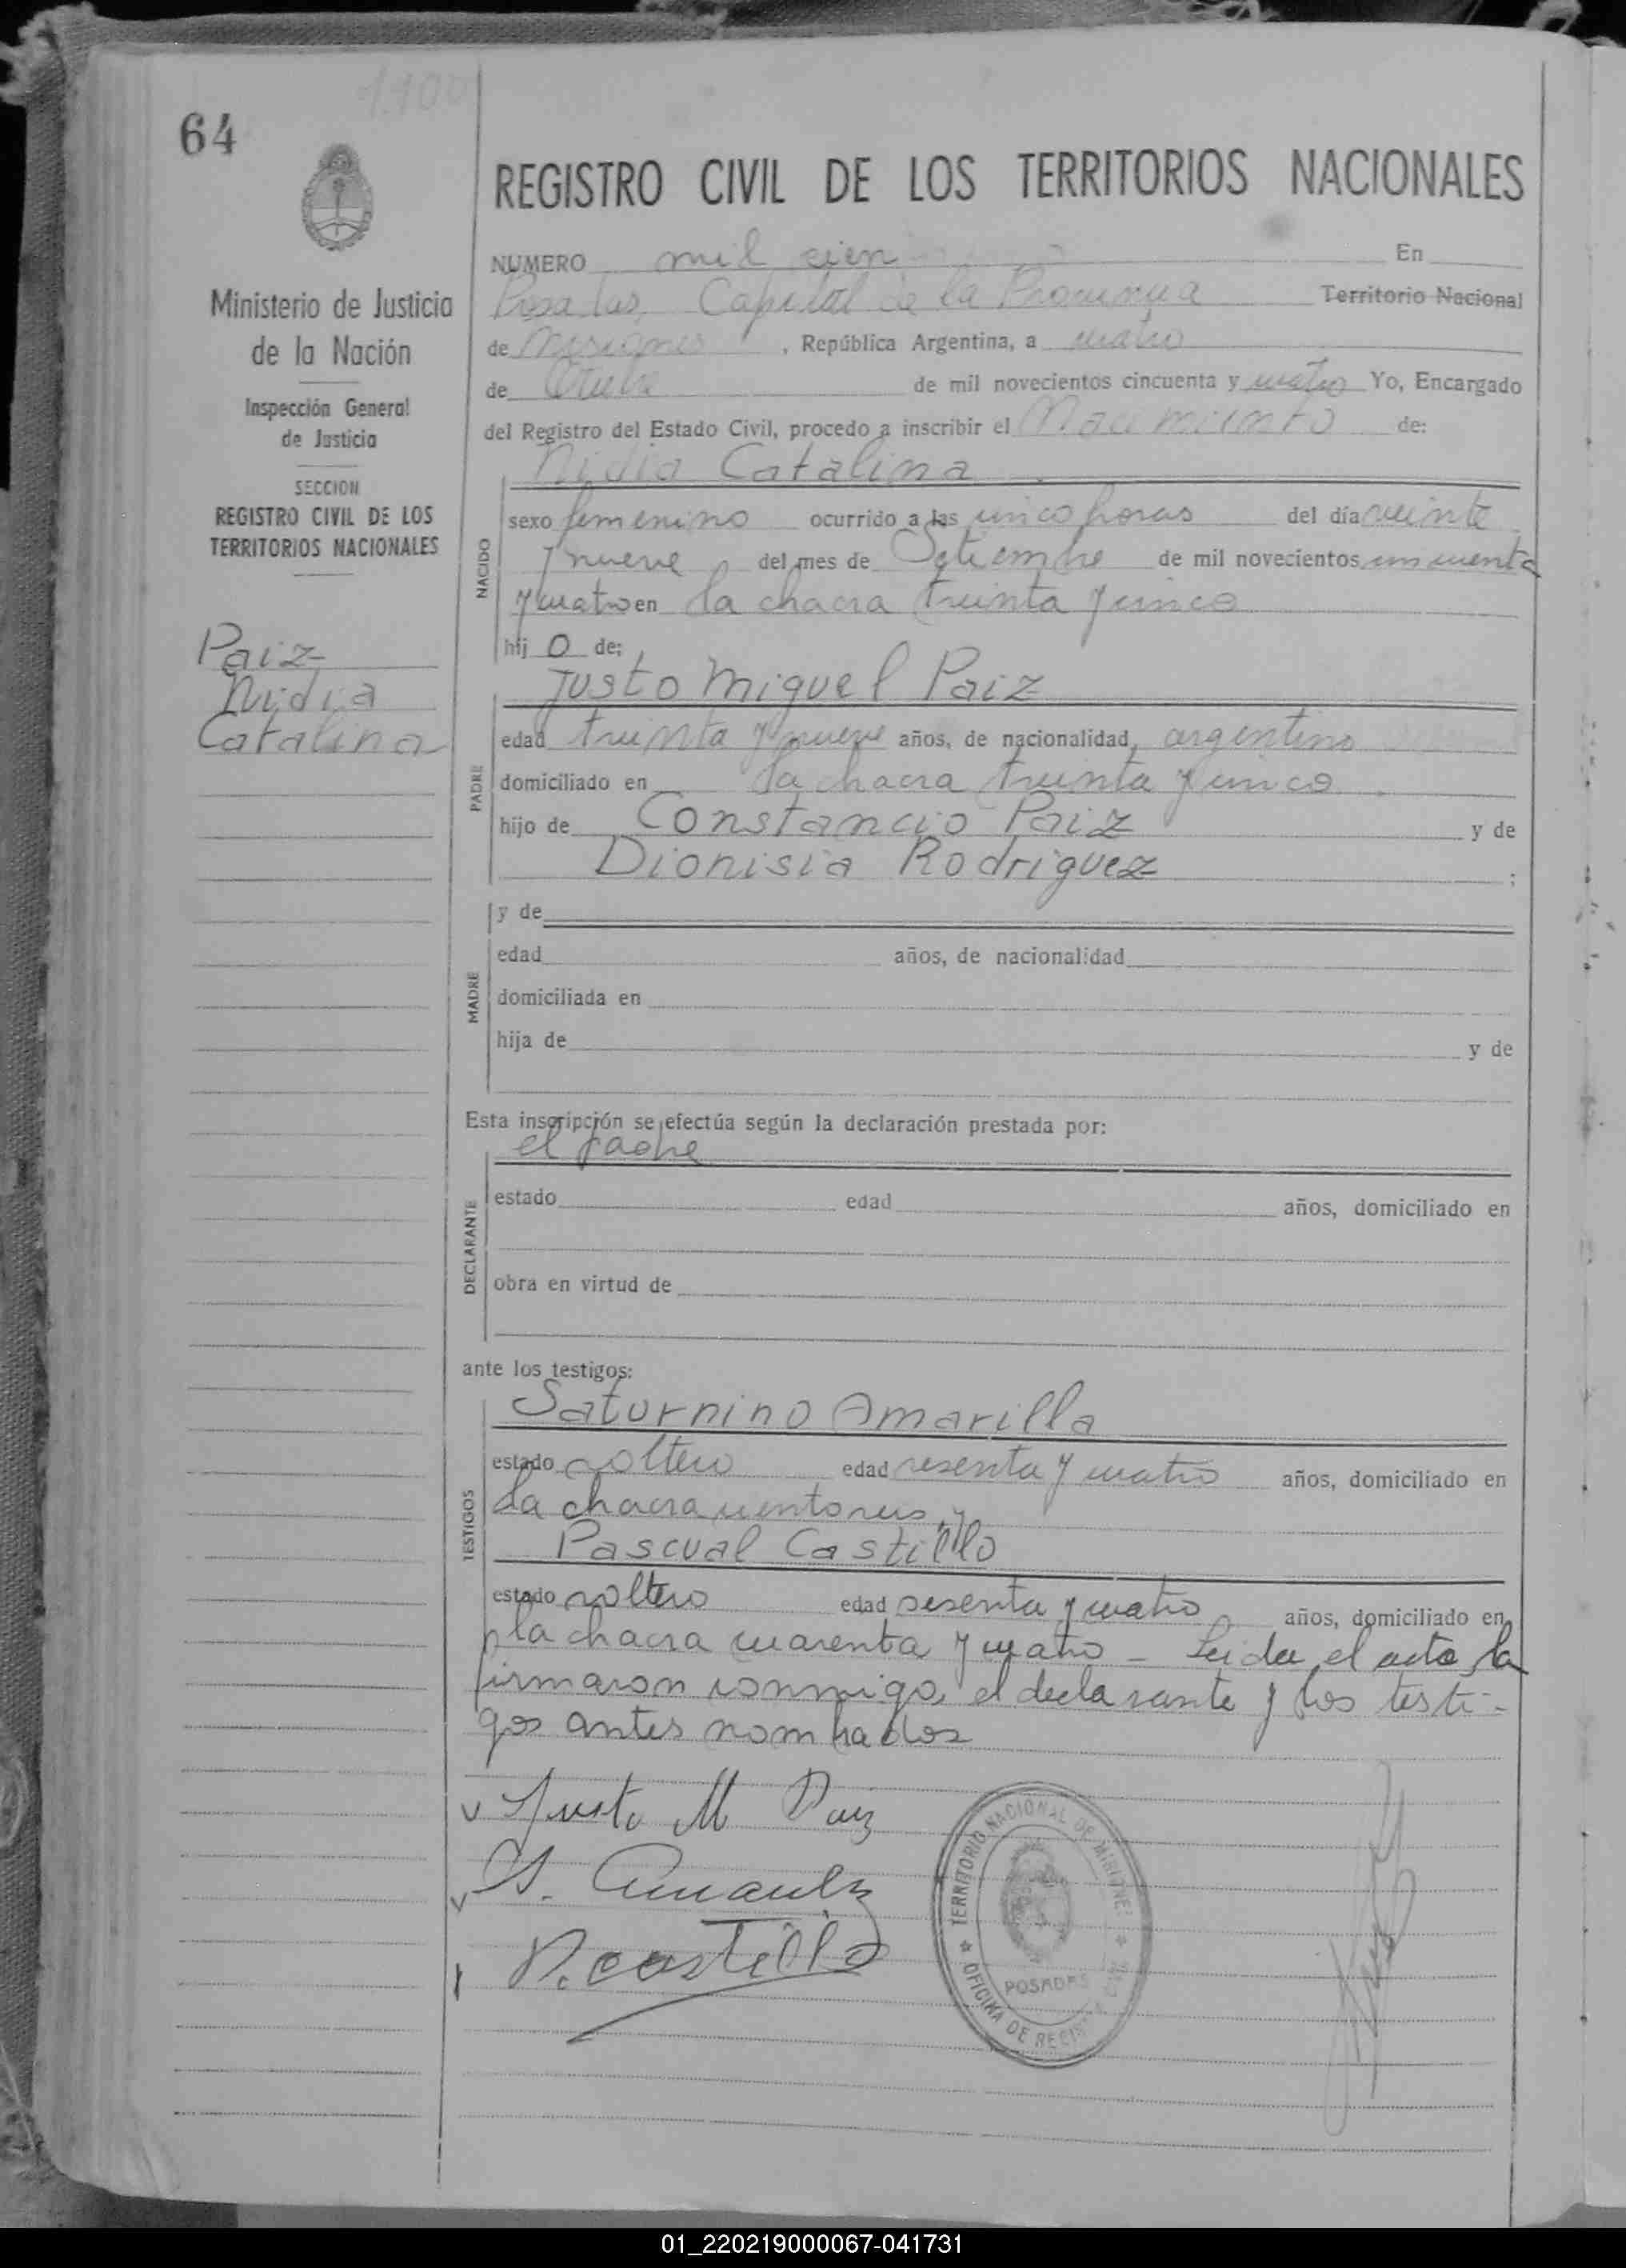 1.100
64
REGISTRO CIVIL DE LOS TERRITORIOS NACIONALES
NUMERO mil cien En
Posadas, Capital de la Provincia Territorio Nacional
de Misiones, República Argentina, a cuatro
de Octubre de mil novecientos cincuenta y cuatro Yo, Encargado
del Registro del Estado Civil, procedo a inscribir el Nacimiento de:
Ministerio de Justicia
de la Nación
Inspección General
de Justicia
SECCION
REGISTRO CIVIL DE LOS
TERRITORIOS NACIONALES
Paiz
Nidia
Catalina
NACIDO
Nidia Catalina
sexo femenino ocurrido a las cinco horas del día veinte
y nueve del mes de Setiembre de mil novecientos cincuenta
y cuatro en la chacra treinta y cinco
hij o de:
PADRE
Justo Miguel Paiz
edad treinta y nueve años, de nacionalidad argentino
domiciliado en la chacra treinta y cinco
hijo de Constancio Paiz y de
Dionisia Rodriguez ;
MADRE
y de
edad años, de nacionalidad
domiciliada en
hija de y de
Esta inscripción se efectúa según la declaración prestada por:
el padre
DECLARANTE
estado edad años, domiciliado en
obra en virtud de
ante los testigos:
TESTIGOS
Saturnino Amarilla
estado soltero edad sesenta y cuatro años, domiciliado en
la chacra ciento seis, y
Pascual Castillo
estado soltero edad sesenta y cuatro años, domiciliado en
la chacra cuarenta y cuatro - Leida el acta, la
firmaron conmigo, el declarante y los testi-
gos antes nombrados
Justo M Paiz
S. Amarilla
P. Castillo
TERRITORIO NACIONAL DE MISIONES
POSADAS
OFICINA DE REGISTRO CIVIL
01_220219000067-041731